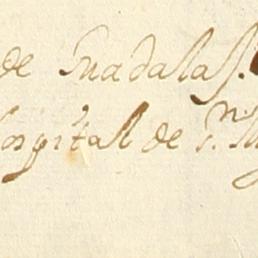 de Guadalaj.
Hospital de S.n